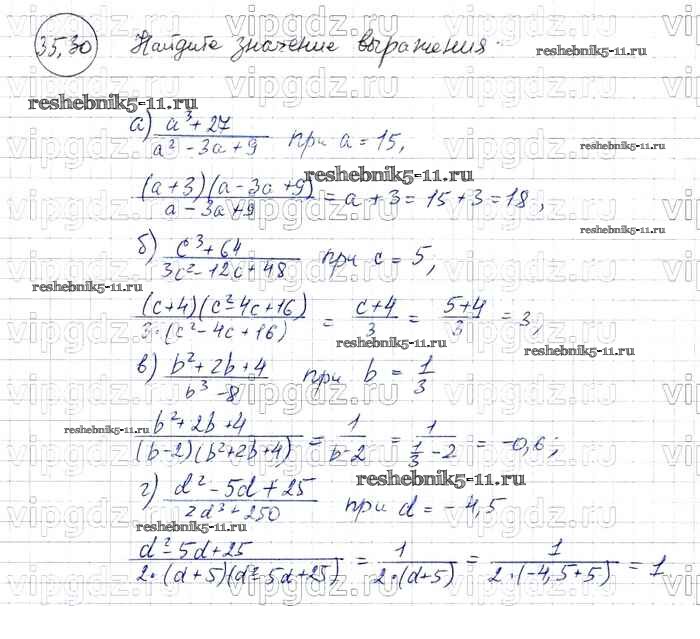 35,30 Найдите значение выражения.
а) a³+27 / a²-3a+9 при a=15,
(a+3)(a-3a+9) / a-3a+9 = a+3 = 15+3 = 18,
б) c³+64 / 3c²-12c+48 при c = 5,
(c+4)(c²-4c+16) / 3·(c²-4c+16) = c+4 / 3 = 5+4 / 3 = 3,
в) b²+2b+4 / b³-8 при b = 1/3
b²+2b+4 / (b-2)(b²+2b+4) = 1 / b-2 = 1 / 1/3 - 2 = -0,6;
г) d²-5d+25 / 2d³+250 при d = -4,5
d²-5d+25 / 2·(d+5)(d²-5d+25) = 1 / 2·(d+5) = 1 / 2·(-4,5+5) = 1
vipgdz.ru
reshebnik5-11.ru